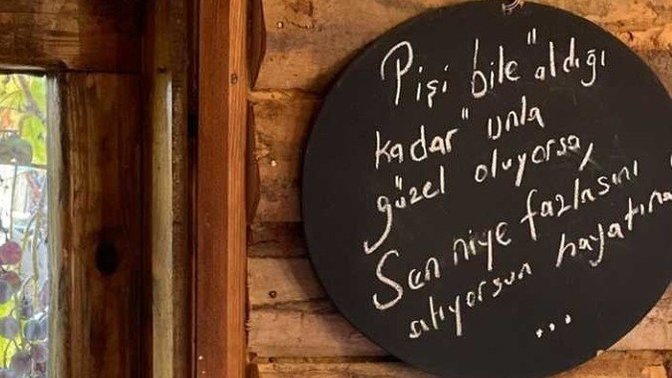 Pişi bile "aldığı
kadar" unla
güzel oluyorsa,
Sen niye fazlasını
atıyorsun hayatına
...